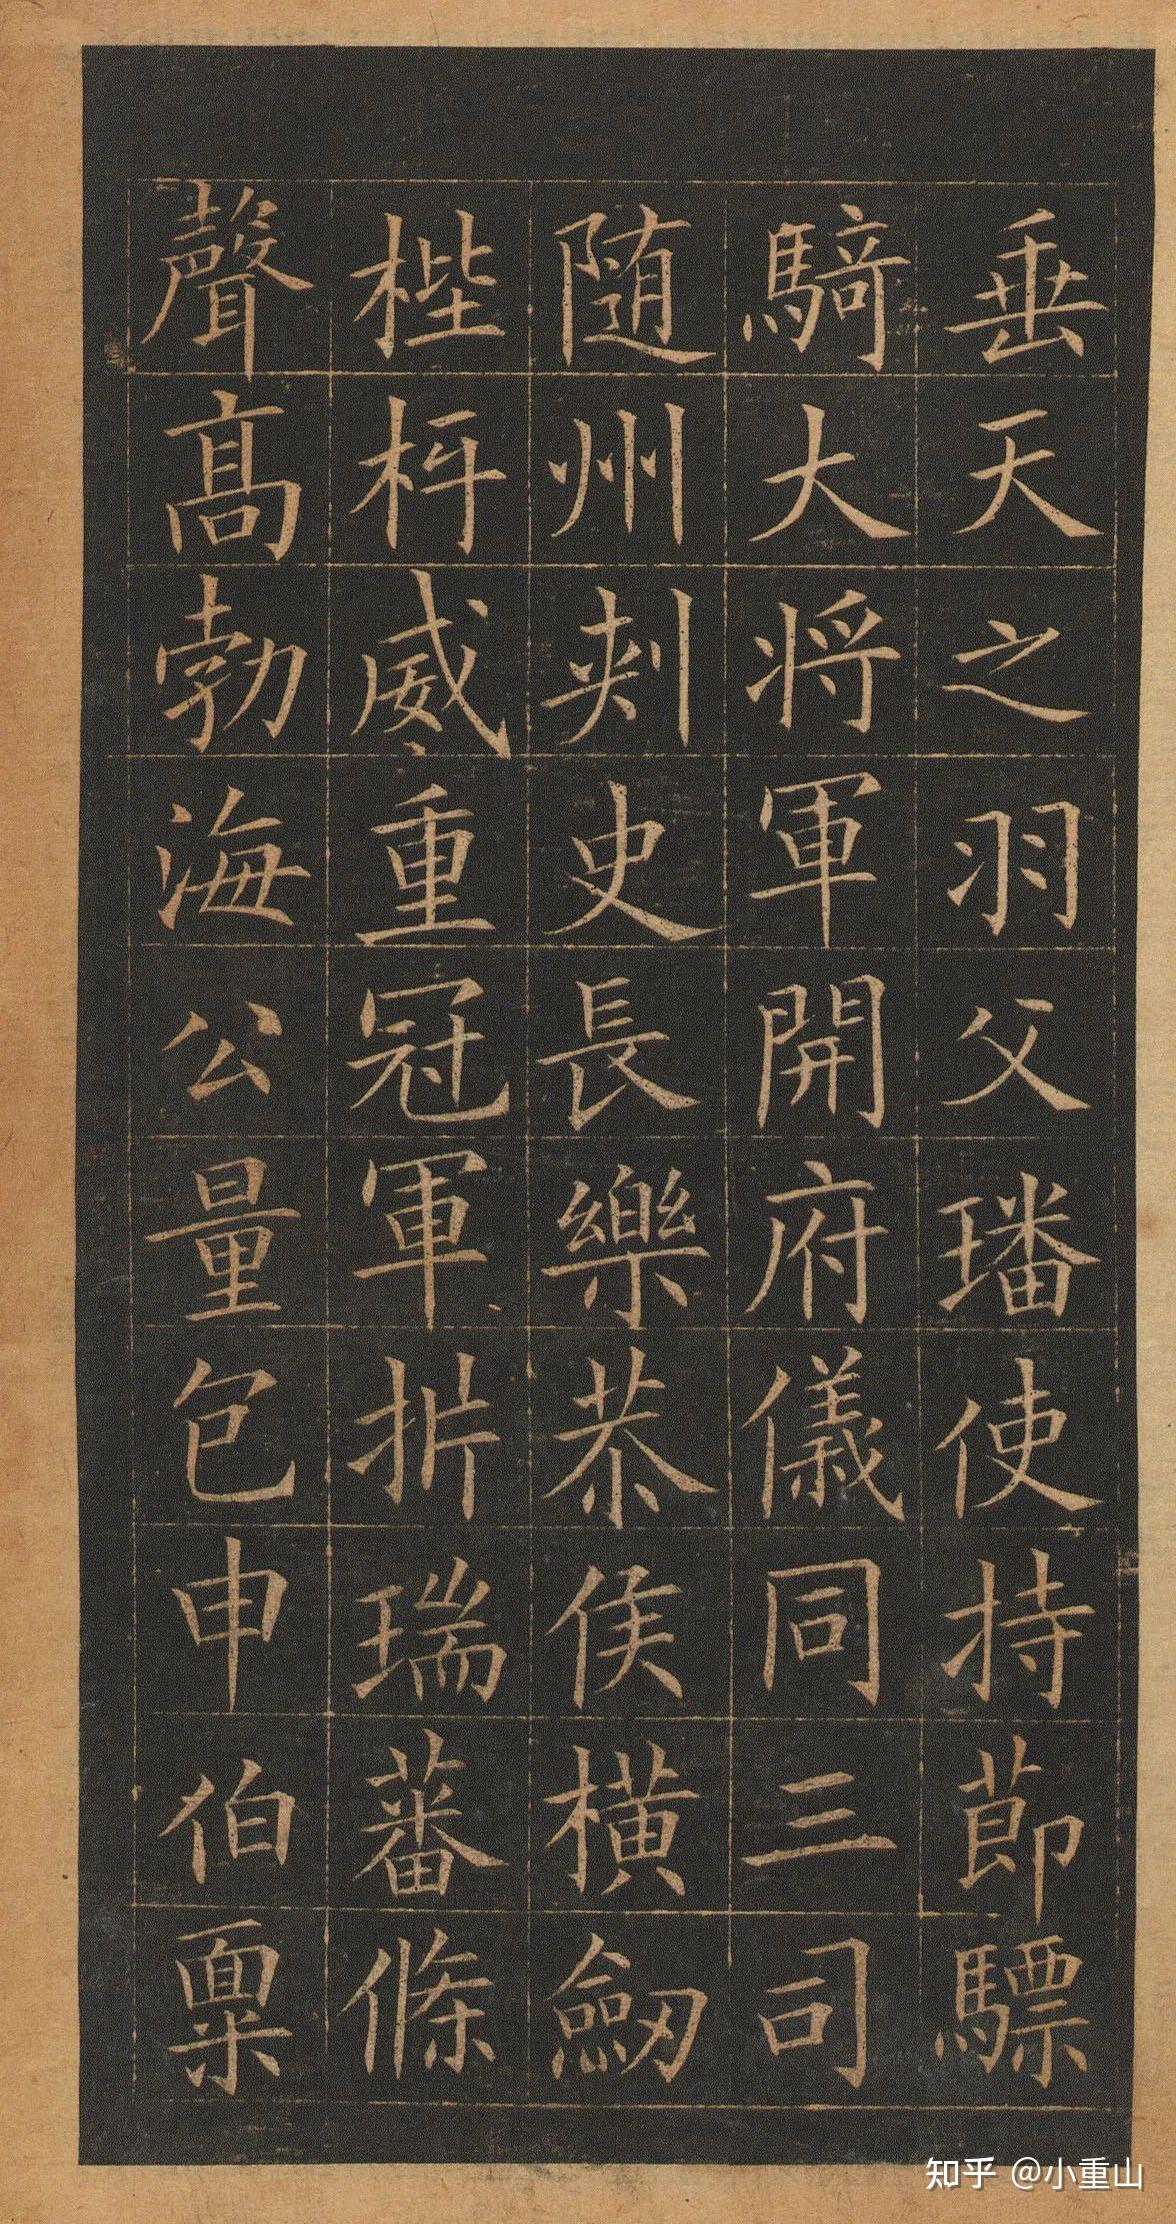 垂天之羽父璠使持節驃
騎大将軍開府儀同三司
随州刾史長樂恭侯橫劒
梐枑威重冠軍折瑞蕃條
聲髙勃海公量包申伯稟
知乎 @小重山